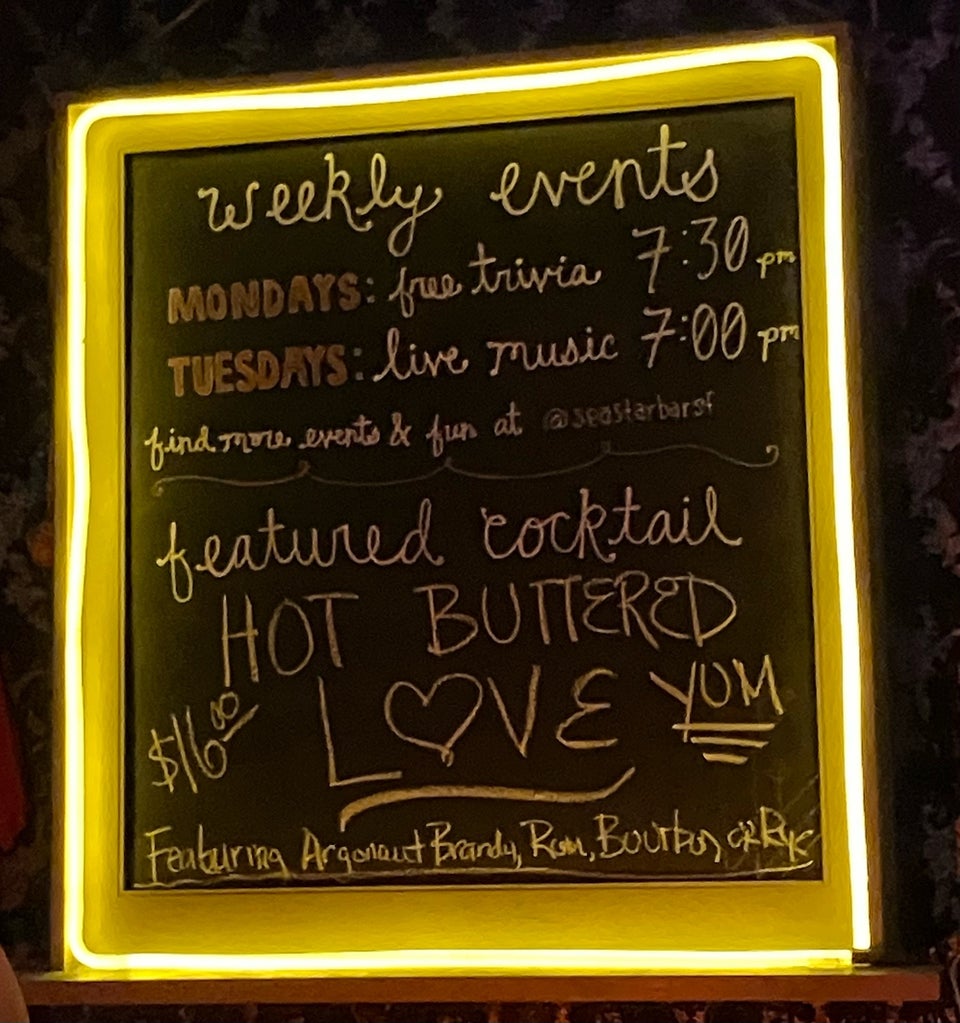 weekly events
MONDAYS: free trivia 7:30 pm
TUESDAYS: live music 7:00 pm
find more events & fun at @seastarbarsf
featured cocktail
HOT BUTTERED
L♡VE YUM
$16.00
Featuring Argonaut Brandy, Rum, Bourbon, or Rye